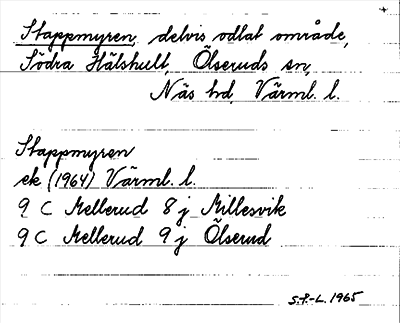 Stappmyren, delvis odlat område,
Södra Hälshult, Ölseruds sn,
Näs hd, Värml. l.
Stappmyren
ek (1964) Värml. l.
9 C Mellerud 8 j Millesvik
9 C Mellerud 9 j Ölserud
S.F-L. 1965